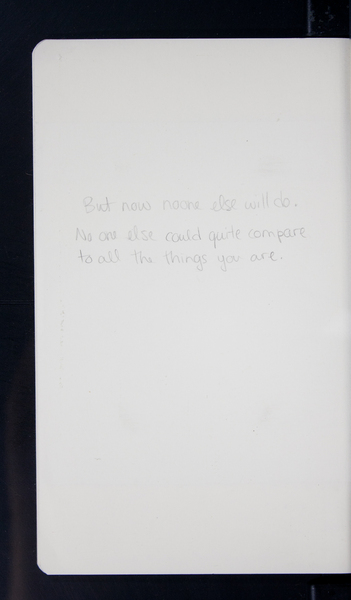 But now noone else will do.
No one else could quite compare
to all the things you are.